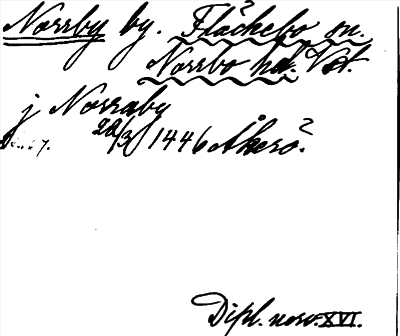 Norrby by. Fläckebo sn.
Norrbo hd. Vstm.
j Norraby
22/3 1446 Åkerö.
Dipl. norv. XVI.